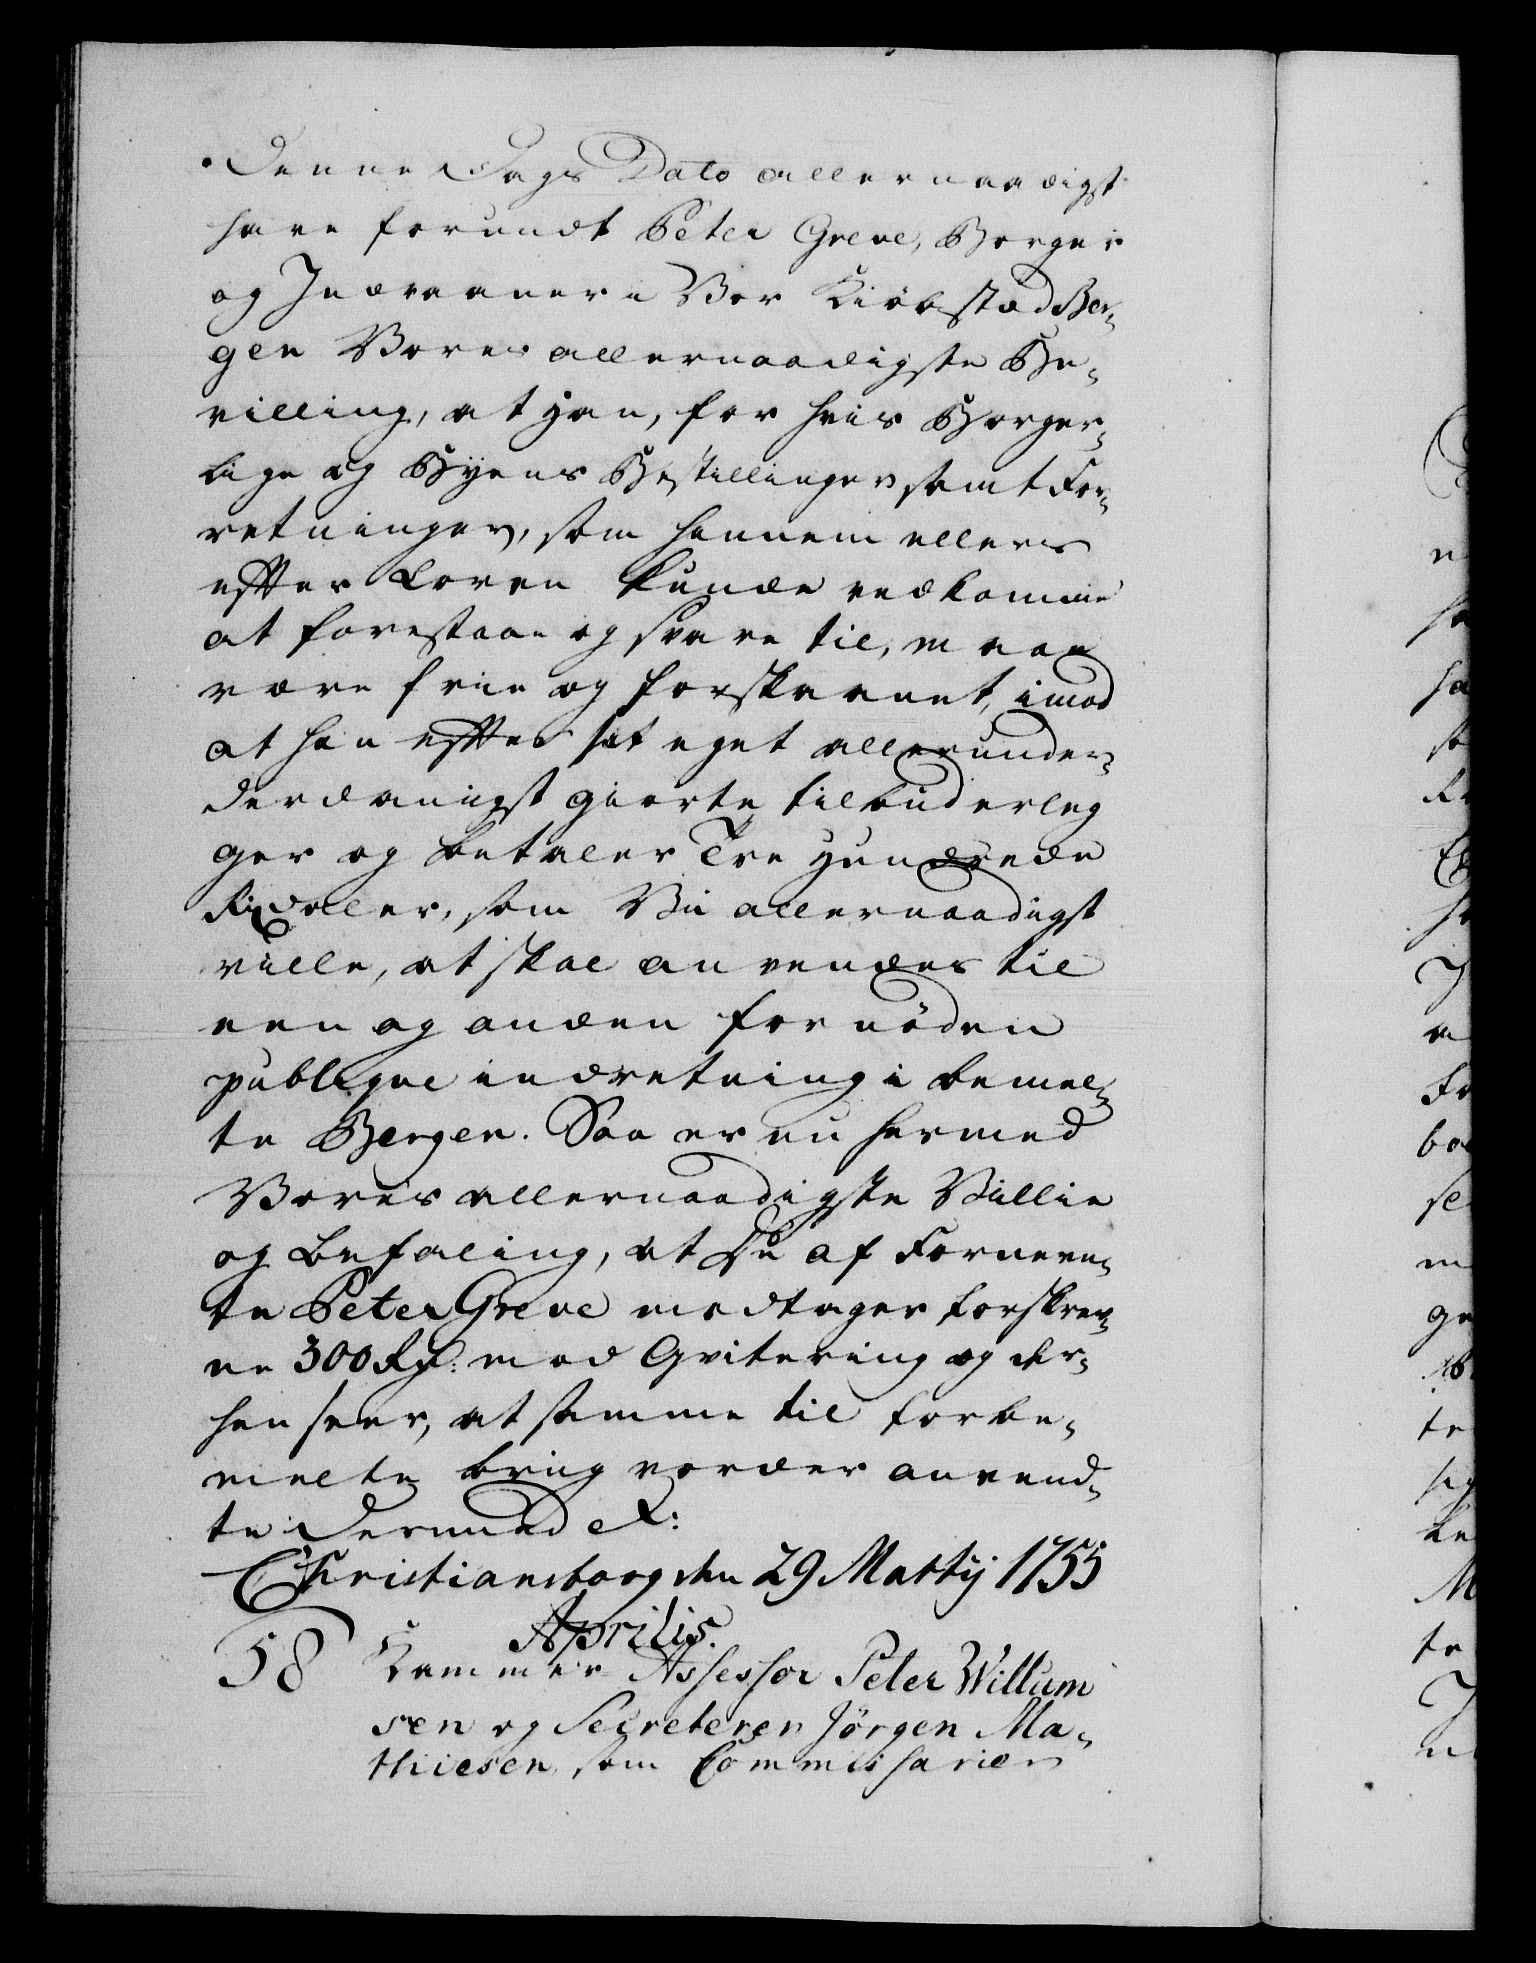 Denne Dags Dato allernaadigst
have forundt Peter Greve, Borger
og Indvaaner i Vor Kiöbstæd Ber¬
gen Vores allernaadigste Be¬
villing, at han, for hvis Borger¬
lige og Byens Bestillinger samt For¬
retninger, som hannem ellers
efter Loven kunde vedkomme
at forestaae og svare til, maae
være frie og forskaanet, imod
at han efter sit eget allerunder¬
derdanigst giorte tilbud erleg
ger og betaler Tre Hundrede
Rixdaler, som Vii allernaadigst
ville, at skal anvendes til
een og anden fornöden
publique indretning i bemel¬
te Bergen. Saa er nu hermed
Vores allernaadigste Villie
og Befaling, at Du af Fornevn¬
te Peter Greve modtager forskrev¬
ne 300 Rdr: mod Qvitering og der¬
hen seer, at samme til forbe¬
meelte brug vorder anvend¬
te Dermed &:
Christiansborg den 29 Martij 1755
Aprilis.
58 Kammer Assessor Peter Willum
sen og Secreterer Jörgen Ma¬
thiesen, som Commissarier